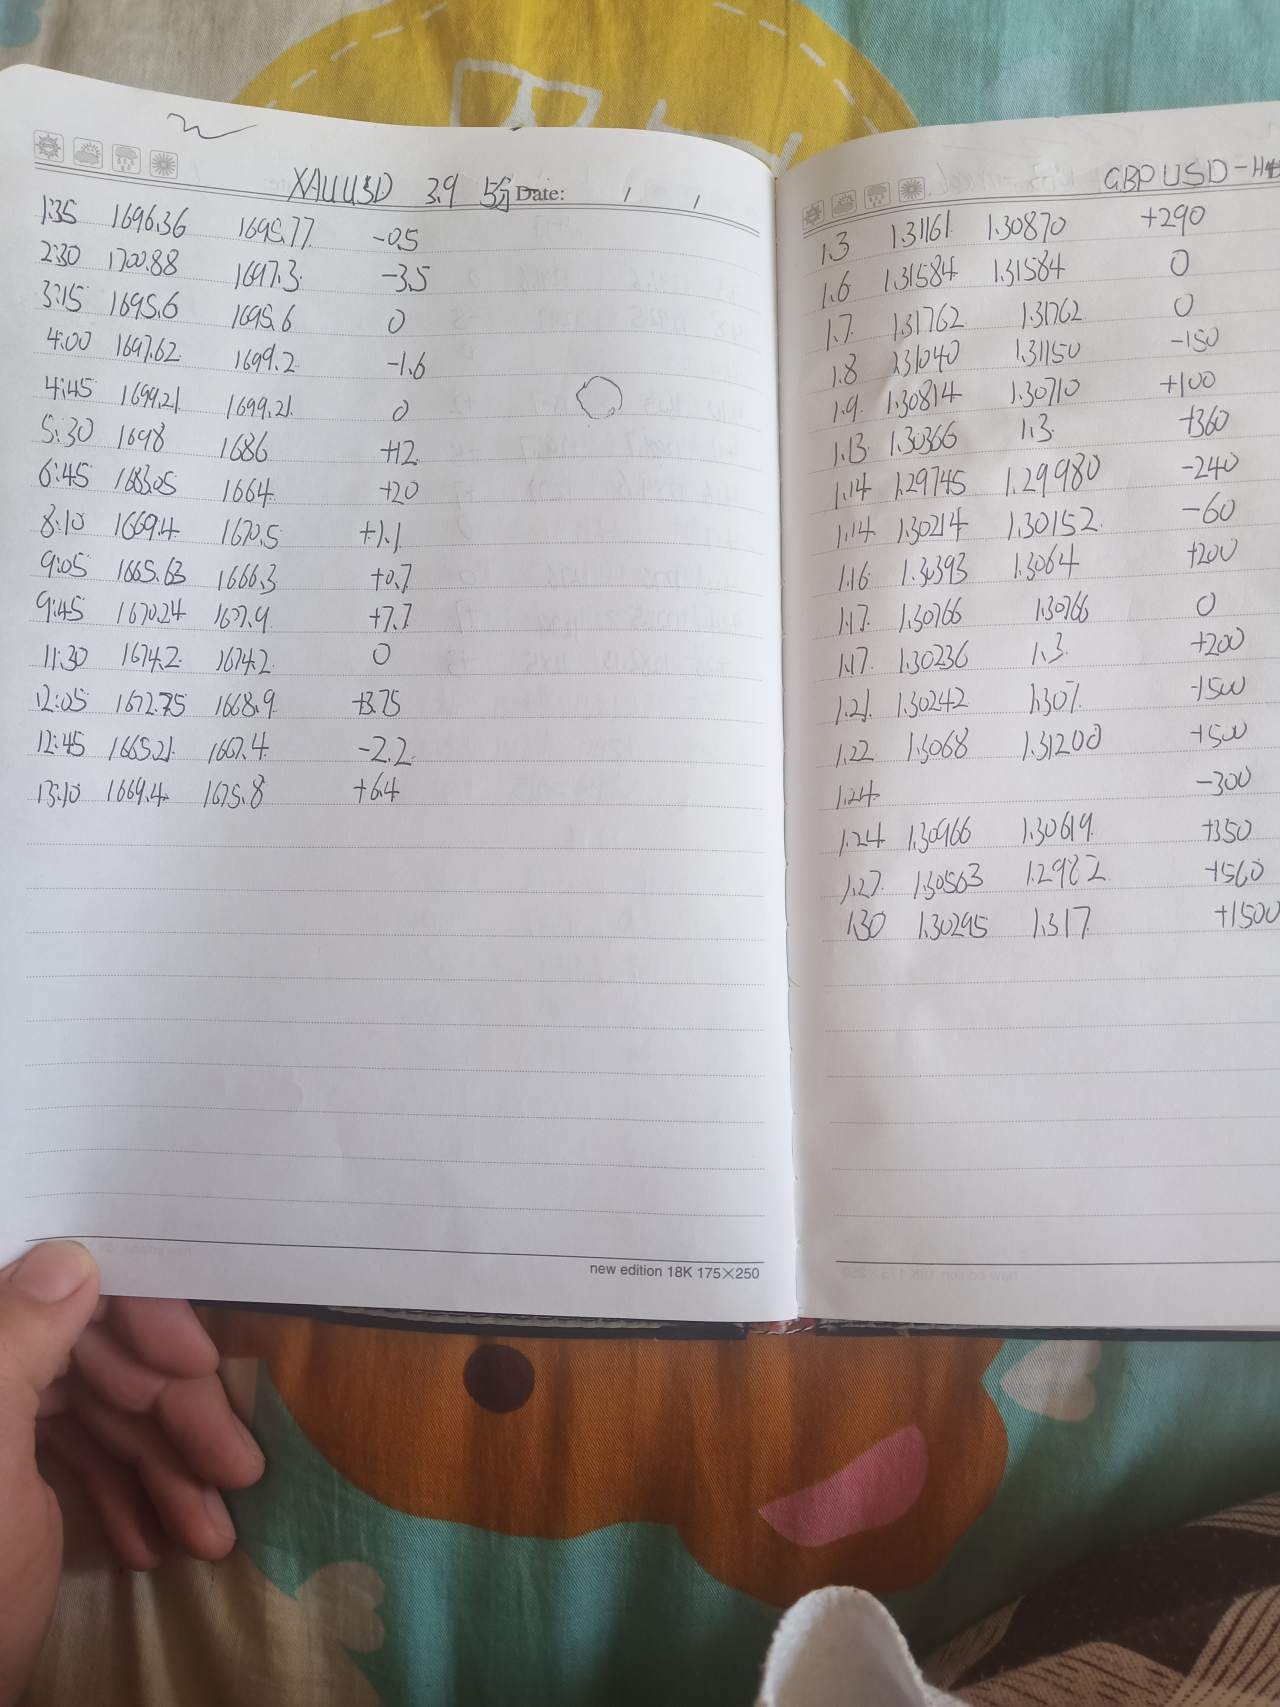 XAUUSD 3.9 5分 Date: / /
1:35 1696.36 1695.77 -0.5
2:30 1700.88 1697.3 -3.5
3:15 1695.6 1695.6 0
4:00 1697.62 1699.2 -1.6
4:45 1699.21 1699.21 0
5:30 1698 1686 +12
6:45 1683.05 1664 +20
8:10 1669.4 1670.5 +1.1
9:05 1665.63 1666.3 +0.7
9:45 1670.24 +7.7
11:30 1674.2 1674.2 0
12:05 1672.75 1668.9 +3.75
12:45 1665.21 1667.4 -2.2
13:10 1669.4 1675.8 +6.4
new edition 18K 175×250
GBPUSD-H4
1.3 1.31161 1.30870 +290
1.6 1.31584 1.31584 0
1.7 1.31762 1.31762 0
1.8 1.31040 1.31150 -150
1.9 1.30814 1.30710 +100
1.13 1.30366 1.3 +360
1.14 1.29745 1.29980 -240
1.14 1.30214 1.30152 -60
1.16 1.30393 1.3064 +200
1.17 1.30766 1.30766 0
1.17 1.30236 1.3 +200
1.21 1.30242 -1500
1.22 1.3068 1.31200 +500
1.24 -300
1.24 1.30966 1.30619 +350
1.27 1.30563 +560
1.30 1.30295 1.317 +1500